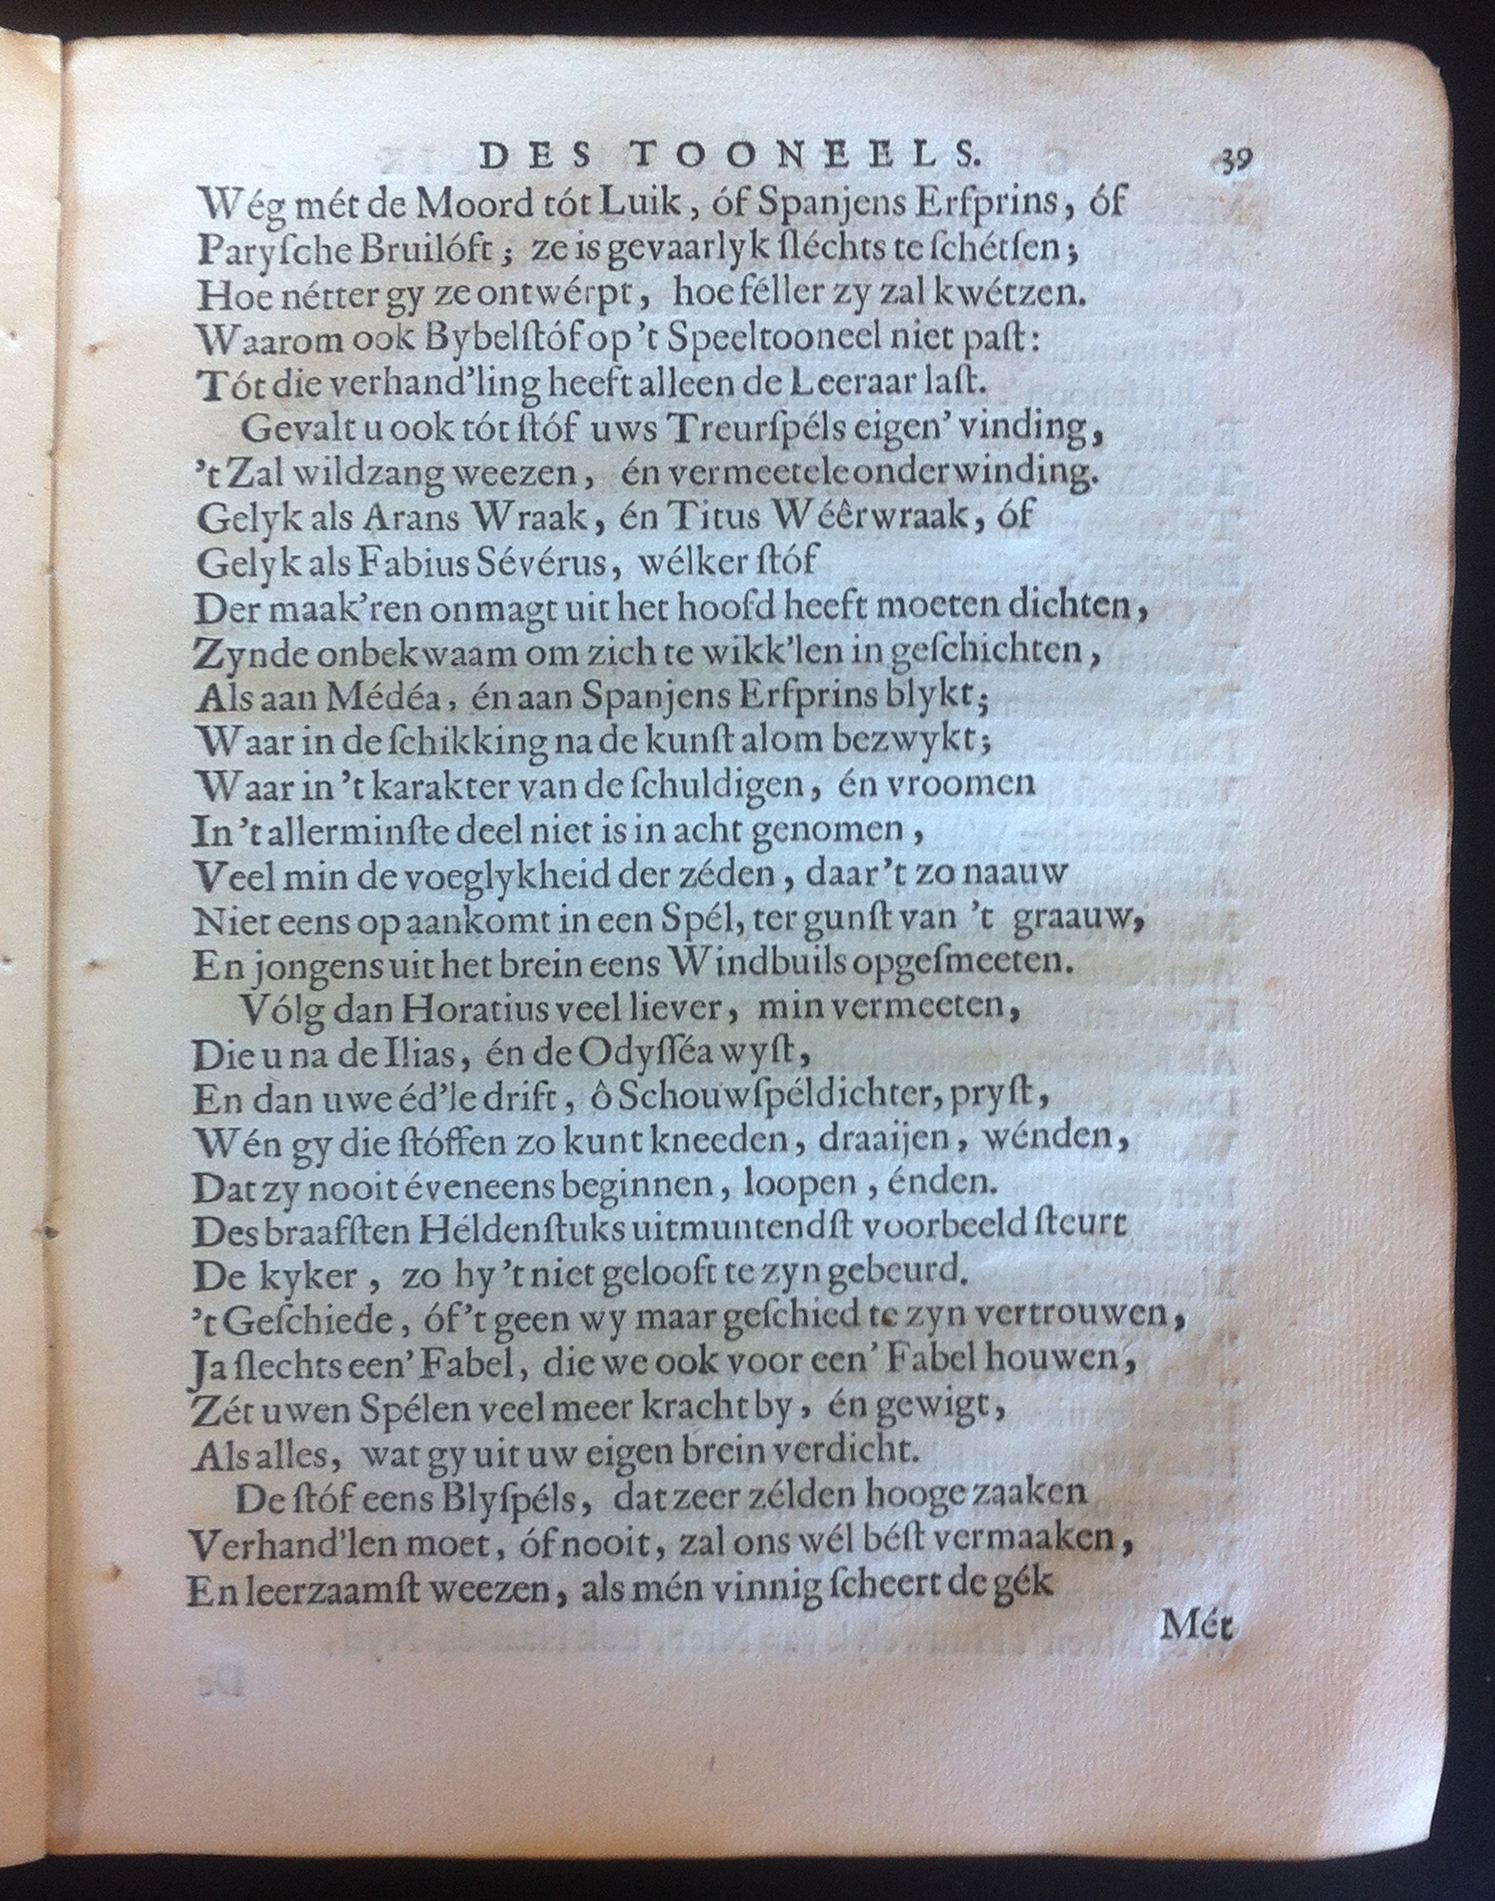 DES TOONEELS. 39
Wég mét de Moord tót Luik, óf Spanjens Erfprins, óf
Paryſche Bruilóft; ze is gevaarlyk ſléchts te ſchétſen;
Hoe nétter gy ze ontwérpt, hoe féller zy zal kwétzen.
Waarom ook Bybelſtóf op 't Speeltooneel niet paſt:
Tót die verhand'ling heeft alleen de Leeraar laſt.
Gevalt u ook tót ſtóf uws Treurſpéls eigen' vinding,
't Zal wildzang weezen, én vermeetele onderwinding.
Gelyk als Arans Wraak, én Titus Wéêrwraak, óf
Gelyk als Fabius Sévérus, wélker ſtóf
Der maak'ren onmagt uit het hoofd heeft moeten dichten,
Zynde onbekwaam om zich te wikk'len in geſchichten,
Als aan Médéa, én aan Spanjens Erfprins blykt;
Waar in de ſchikking na de kunſt alom bezwykt;
Waar in 't karakter van de ſchuldigen, én vroomen
In 't allerminſte deel niet is in acht genomen,
Veel min de voeglykheid der zéden, daar 't zo naauw
Niet eens op aankomt in een Spél, ter gunſt van 't graauw,
En jongens uit het brein eens Windbuils opgeſmeeten.
Vólg dan Horatius veel liever, min vermeeten,
Die u na de Ilias, én de Odyſſéa wyſt,
En dan uwe éd'le drift, ô Schouwſpéldichter, pryſt,
Wén gy die ſtóffen zo kunt kneeden, draaijen, wénden,
Dat zy nooit éveneens beginnen, loopen, énden.
Des braafſten Héldenſtuks uitmuntendſt voorbeeld ſteurt
De kyker, zo hy 't niet gelooft te zyn gebeurd.
't Geſchiede, óf 't geen wy maar geſchied te zyn vertrouwen,
Ja ſlechts een' Fabel, die we ook voor een' Fabel houwen,
Zét uwen Spélen veel meer kracht by, én gewigt,
Als alles, wat gy uit uw eigen brein verdicht.
De ſtóf eens Blyſpéls, dat zeer zélden hooge zaaken
Verhand'len moet, óf nooit, zal ons wél béſt vermaaken,
En leerzaamſt weezen, als mén vinnig ſcheert de gék
Mét